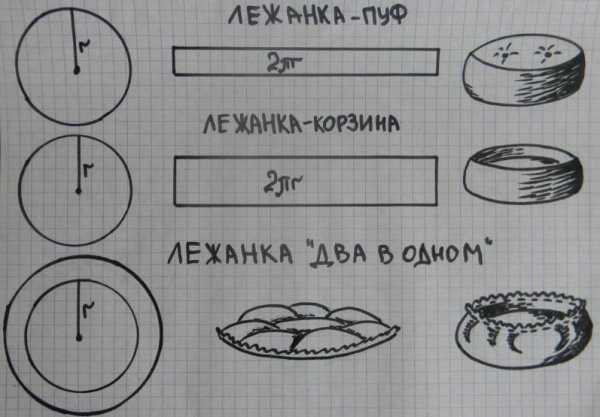 ЛЕЖАНКА-ПУФ
r
2πr
ЛЕЖАНКА-КОРЗИНА
r
2πr
ЛЕЖАНКА "ДВА В ОДНОМ"
r